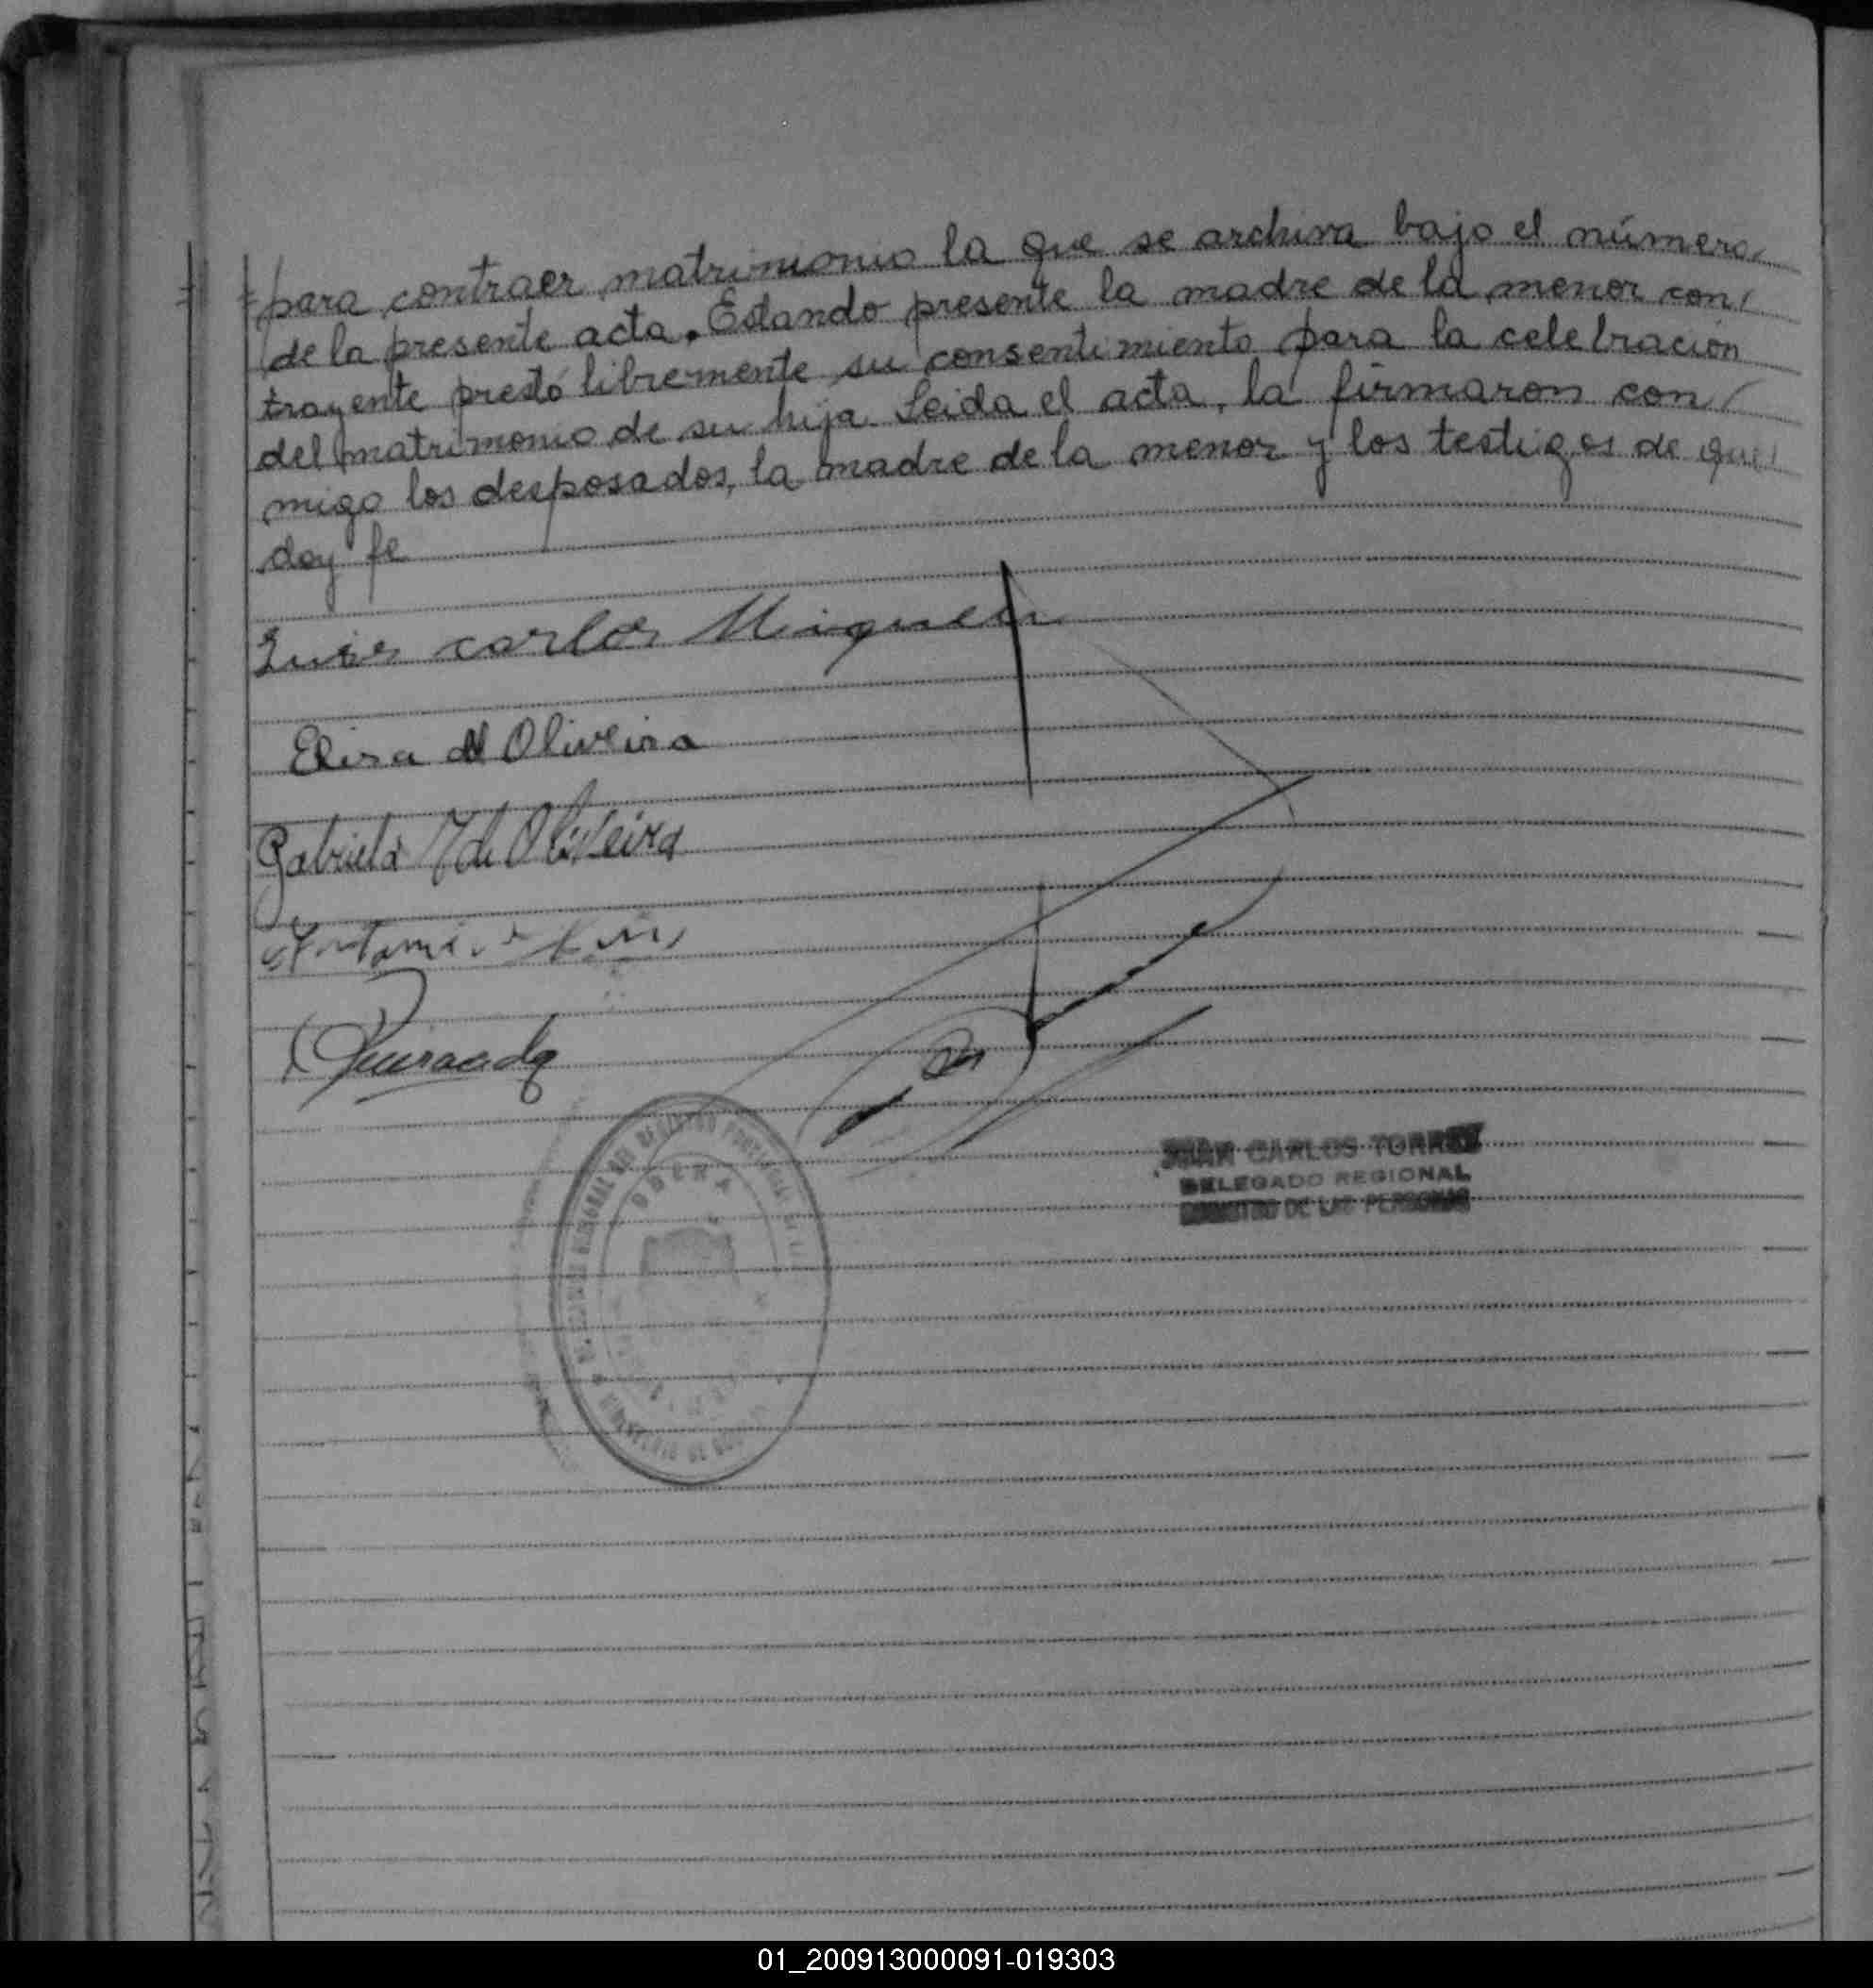 para contraer matrimonio la que se archiva bajo el número
de la presente acta. Estando presente la madre de la menor con/
trayente prestó libremente su consentimiento para la celebración
del matrimonio de su hija. Leida el acta, la firmaron con/
migo los desposados, la madre de la menor y los testigos de que
doy fe
Luis carlos Miguel
Elisa d Oliveira
Gabriela de Oliveira
OBERA
JUAN CARLOS TORRES
DELEGADO REGIONAL
REGISTRO DE LAS PERSONAS
01_200913000091-019303